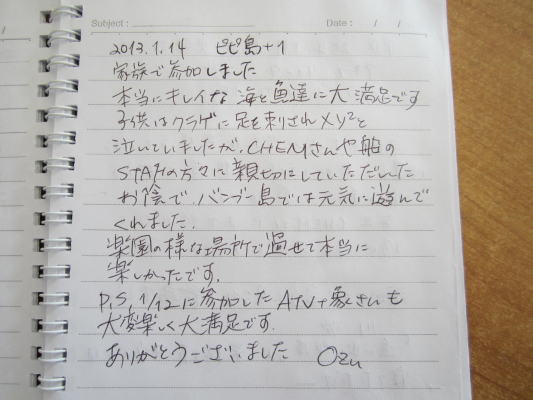 Subject : Date : / /
2013.1.14 ピピ島+1
家族で参加しました
本当にキレイな海と魚達に大満足です
子供はクラゲに足を刺されメソメソと
泣いていましたが、CHEMさんや船の
STAFFの方々に親切にしていただいた
お陰で、バンブー島では元気に遊んで
くれました。
楽園の様な場所で過せて本当に
楽しかったです。
P.S. 1/12に参加したATV+象さんも
大変楽しく大満足です。
ありがとうございました Ozu